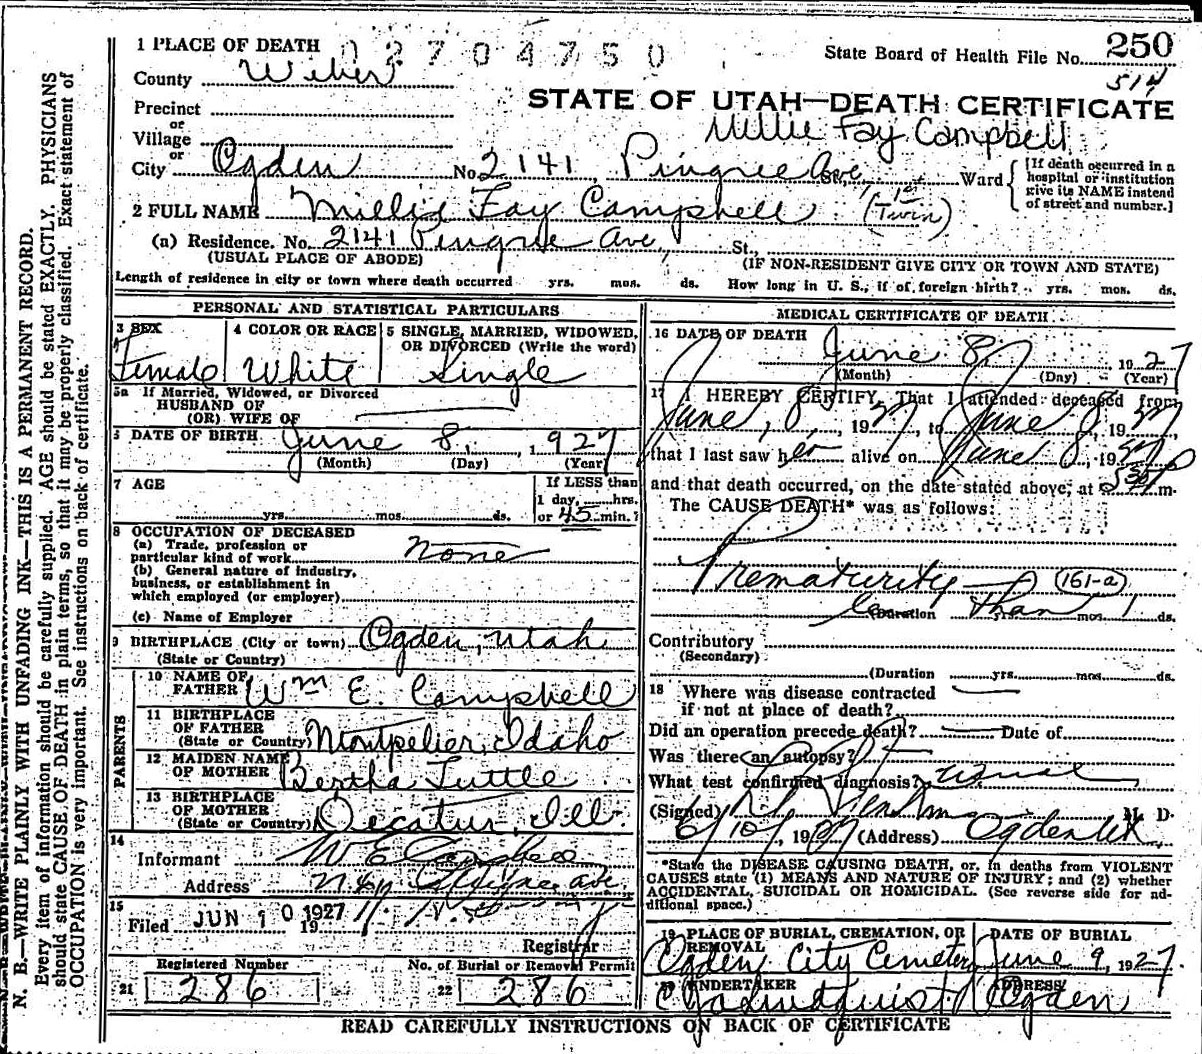 N. B.—WRITE PLAINLY WITH UNFADING INK—THIS IS A PERMANENT RECORD.
Every item of information should be carefully supplied. AGE should be stated EXACTLY. PHYSICIANS
should state CAUSE OF DEATH in plain terms, so that it may be properly classified. Exact statement of
OCCUPATION is very important. See instructions on back of certificate.
1 PLACE OF DEATH
02704750
State Board of Health File No. 250
514
County Weber
STATE OF UTAH—DEATH CERTIFICATE
Precinct
Millie Fay Campbell
or
Village
or
City Ogden No. 2141 Pingree Ave St., Ward
[If death occurred in a
hospital or institution
give its NAME instead
of street and number.]
2 FULL NAME Millie Fay Campbell (1st Twin)
(a) Residence. No. 2141 Pingree Ave, St.,
(USUAL PLACE OF ABODE) (IF NON-RESIDENT GIVE CITY OR TOWN AND STATE)
Length of residence in city or town where death occurred yrs. mos. ds. How long in U. S., if of foreign birth? yrs. mos. ds.
PERSONAL AND STATISTICAL PARTICULARS
3 SEX
Female
4 COLOR OR RACE
White
5 SINGLE, MARRIED, WIDOWED,
OR DIVORCED (Write the word)
Single
5a If Married, Widowed, or Divorced
HUSBAND OF
(OR) WIFE OF
6 DATE OF BIRTH June 8, 1927
(Month) (Day) (Year)
7 AGE
yrs. mos. ds.
If LESS than
1 day, hrs.
or 45 min.?
8 OCCUPATION OF DECEASED
(a) Trade, profession or
particular kind of work None
(b) General nature of industry,
business, or establishment in
which employed (or employer)
(c) Name of Employer
9 BIRTHPLACE (City or town) Ogden, Utah
(State or Country)
PARENTS
10 NAME OF
FATHER Wm E. Campbell
11 BIRTHPLACE
OF FATHER
(State or Country) Montpelier, Idaho
12 MAIDEN NAME
OF MOTHER Bertha Tuttle
13 BIRTHPLACE
OF MOTHER
(State or Country) Decatur, Ill.
14
Informant W E Campbell
Address ave
15
Filed JUN 10 1927 19
Registrar
Registered Number
21 286
No. of Burial or Removal Permit
22 286
MEDICAL CERTIFICATE OF DEATH
16 DATE OF DEATH
June 8, 1927
(Month) (Day) (Year)
17 I HEREBY CERTIFY, That I attended deceased from
June, 8, 1927, to June 8, 1927,
that I last saw her alive on June 8, 1927
and that death occurred, on the date stated above, at 5 30 P m.
The CAUSE DEATH* was as follows:
Prematurity — (161-a)
Less than 1
(Duration yrs. mos. ds.
Contributory
(Secondary)
(Duration yrs. mos. ds.
18 Where was disease contracted
if not at place of death?
Did an operation precede death? Date of
Was there an autopsy?
What test confirmed diagnosis? usual
(Signed) M. D.
6/10, 1927 (Address) Ogden Ut
*State the DISEASE CAUSING DEATH, or, in deaths from VIOLENT
CAUSES state (1) MEANS AND NATURE OF INJURY; and (2) whether
ACCIDENTAL, SUICIDAL OR HOMICIDAL. (See reverse side for ad-
ditional space.)
19 PLACE OF BURIAL, CREMATION, OR
REMOVAL
Ogden City Cemetery
DATE OF BURIAL
June 9, 1927
20 UNDERTAKER
Lindquist
ADDRESS
Ogden
READ CAREFULLY INSTRUCTIONS ON BACK OF CERTIFICATE